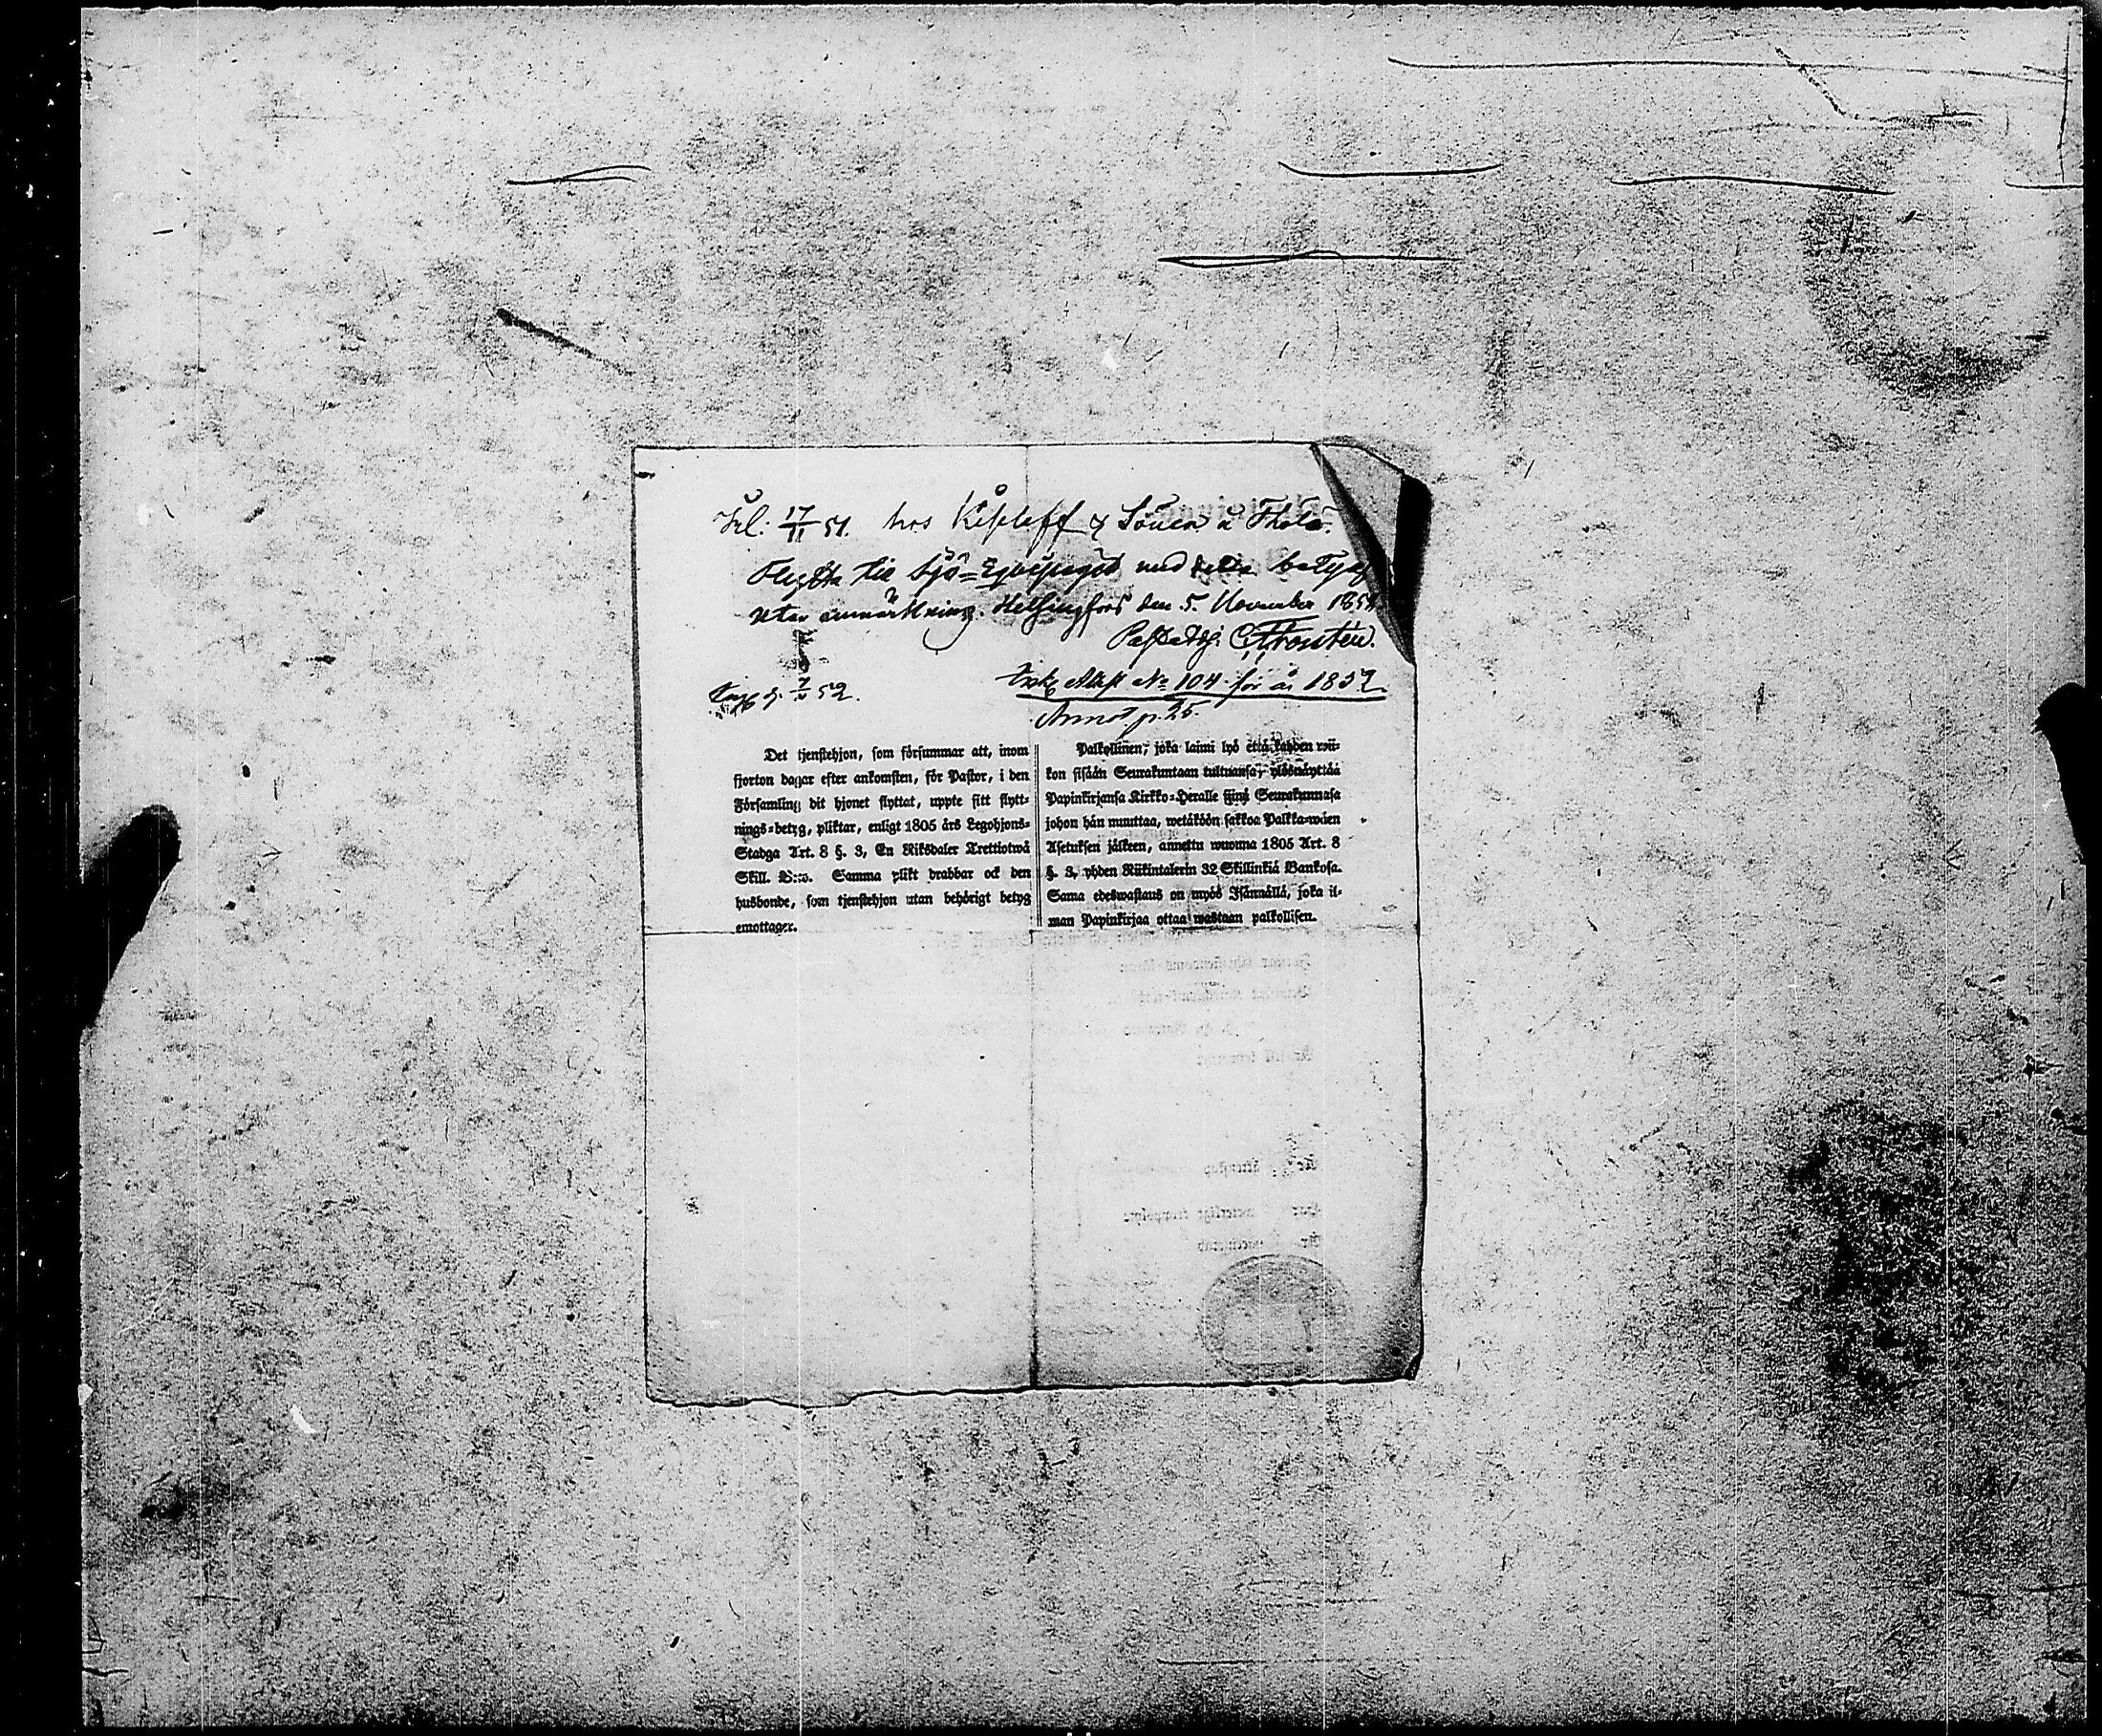 Inl: 17/11 51. hos Kiseleff & Sönen i Thölö.
Flyttar till Sjö=Equipaget med detta betyg
utan anmärkning. Helsingfors den 5. November 185
C Fr
7/ 52.
Attest No 104 för år 1852
Annot p. 25.
Det tjenstehjon, som försummar att, inom
fjorton dagar efter ankomsten, för Pastor, i den
Församling dit hjonet flyttat, uppte sitt flytt-
nings=betyg, pliktar, enligt 1805 års Legohjons-
Stadga Art. 8 §. 3, En Riksdaler Trettiotwå
Skill. B:co. Samma plikt drabbar ock den
husbonde, som tjenstehjon utan behörigt betyg
emottager.
Palkollinen, joka laimi lyö että kahden wii-
kon sisään Seurakuntaan tultuansa, ylösnäyttää
Papinkirjansa Kirkko=Heralle siinä Seurakunnasa
johon hän muuttaa, wetäköön sakkoa Palkka=wäen
Asetuksen jälkeen, annettu wuonna 1805 Art. 8
§. 3, yhden Riikintalerin 32 Skillinkiä Bankosa.
Sama edeswastaus on myös Isännällä, joka il-
man Papinkirjaa ottaa wastaan palkollisen.